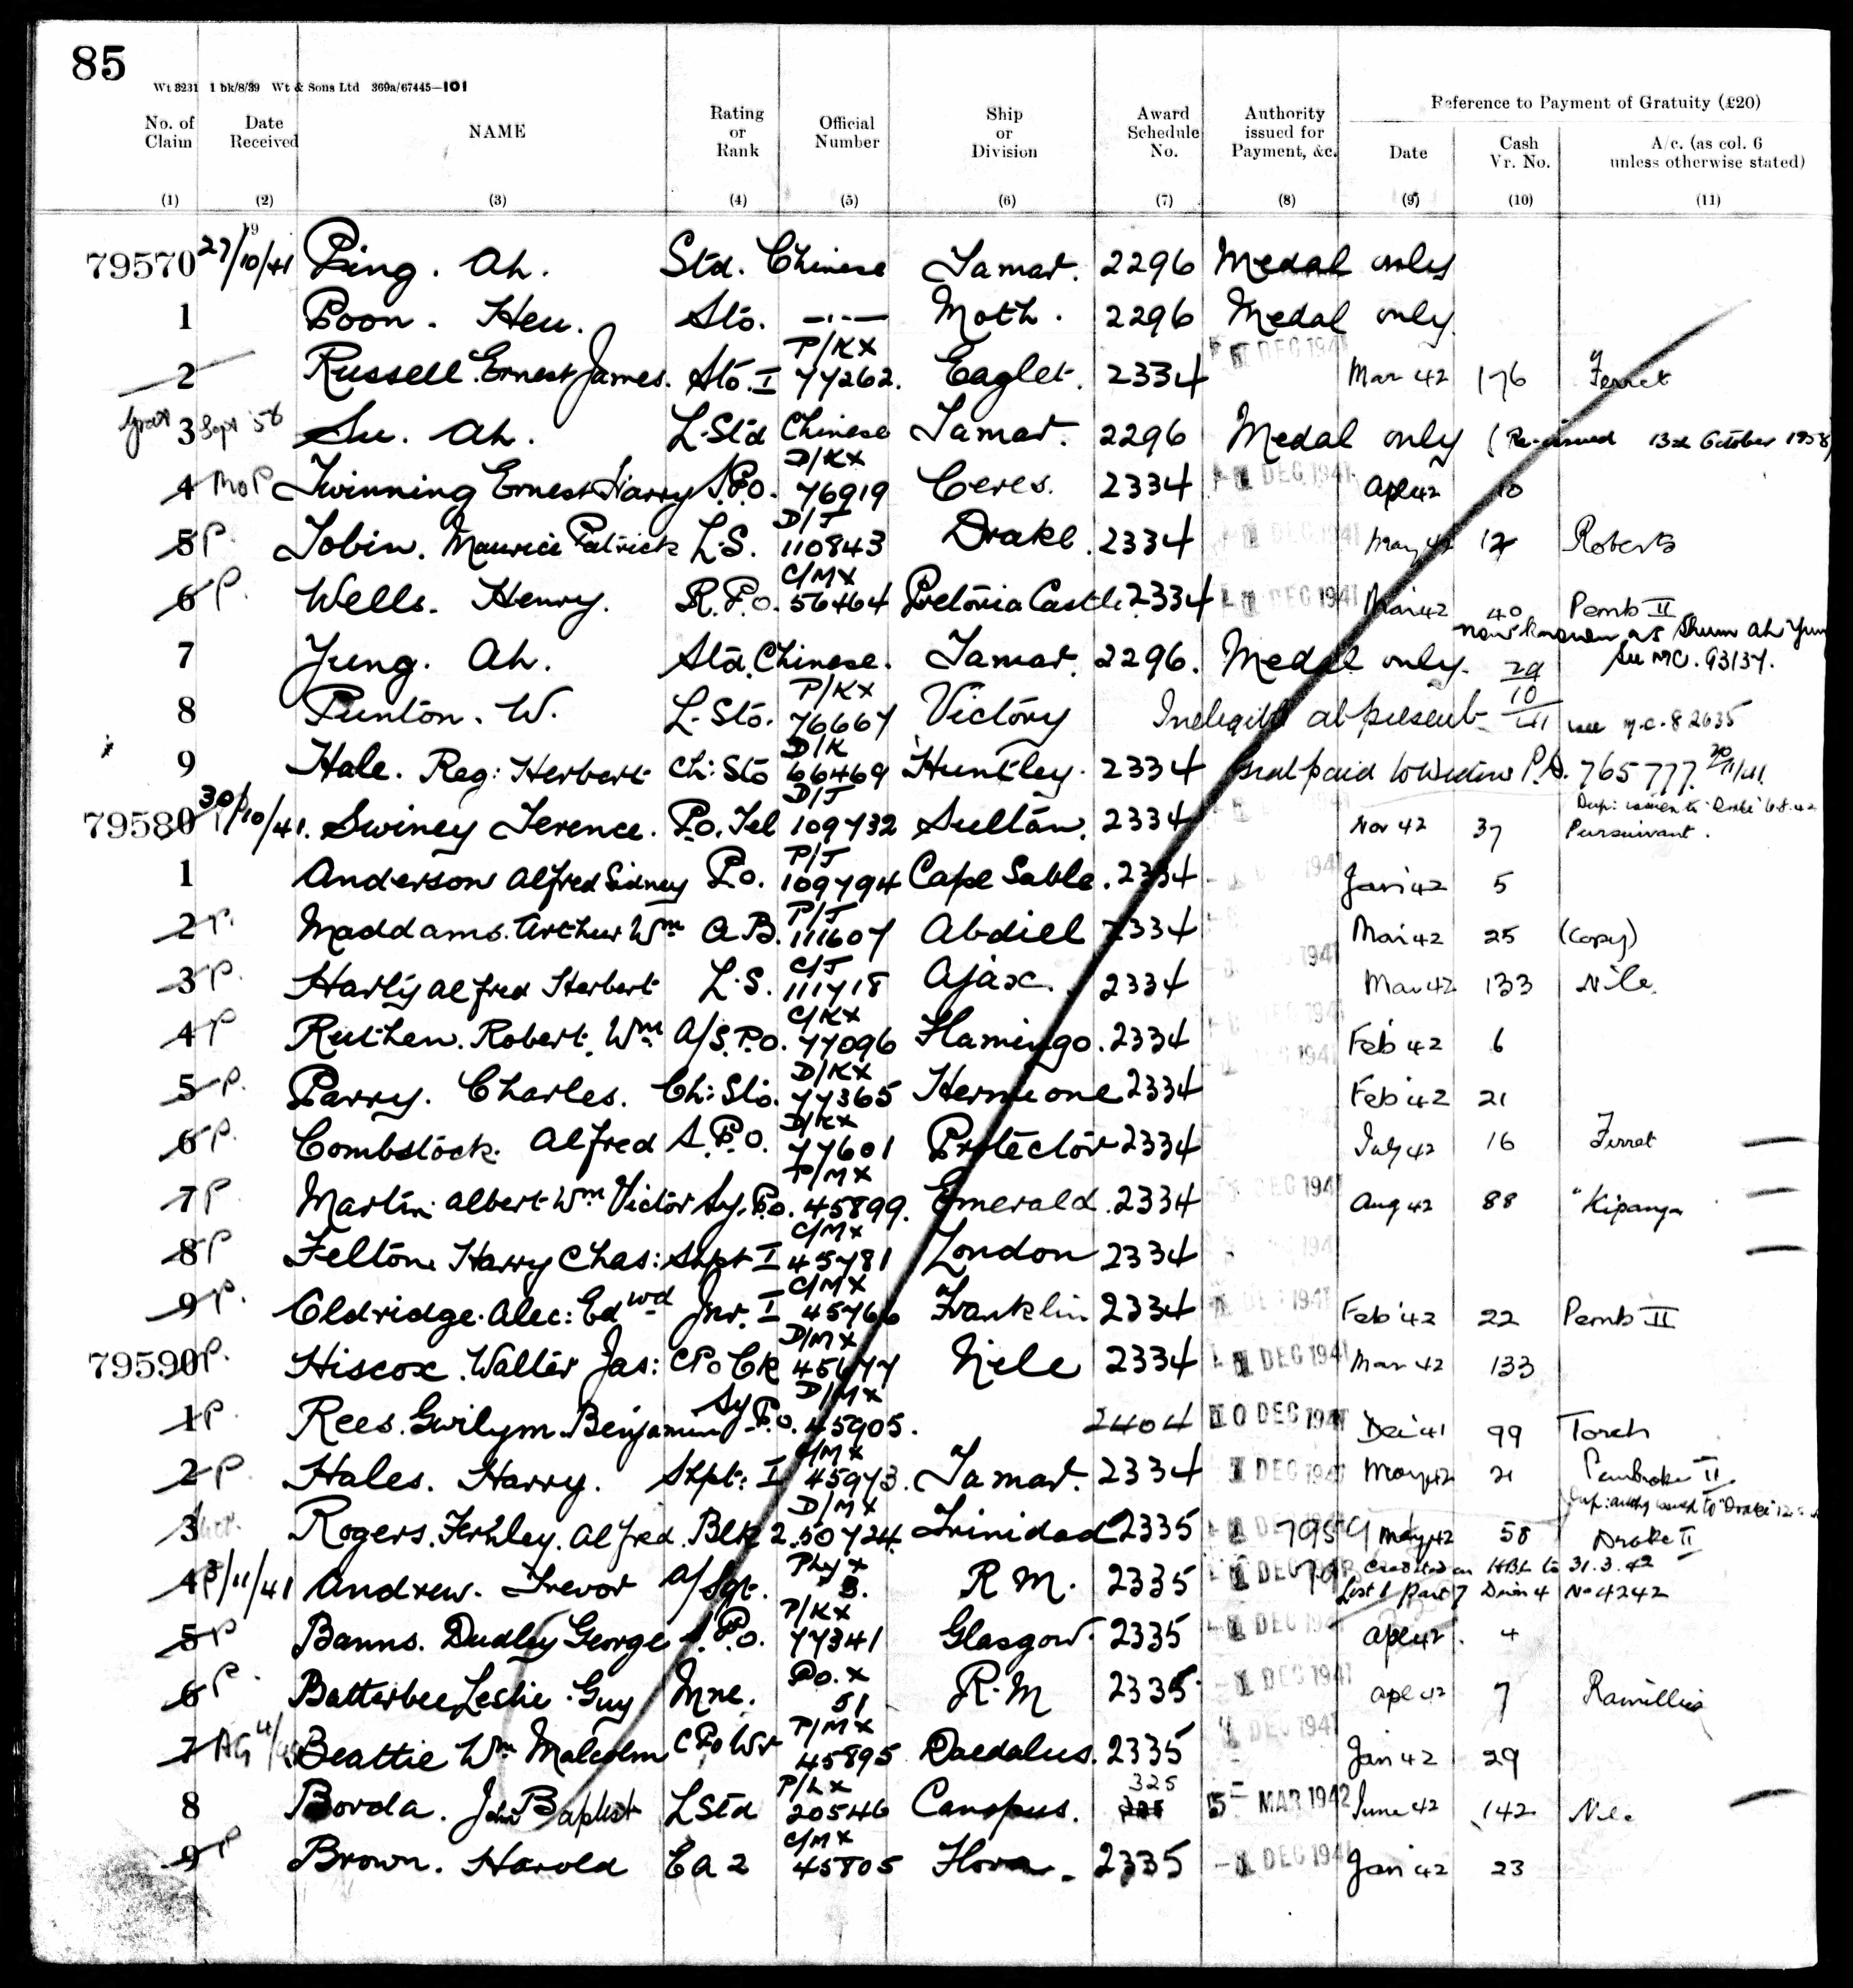 85
Wt 3231 1 bk/8/39 Wt & Sons Ltd 369a/67445—101
Reference to Payment of Gratuity (£20)
No. of Claim Date Received NAME Rating or Rank Official Number Ship or Division Award Schedule No. Authority issued for Payment, &c. Date Cash Vr. No. A/c. (as col. 6 unless otherwise stated)
(1) (2) (3) (4) (5) (6) (7) (8) (9) (10) (11)
79570 27/10/41 Ping. Ah. Std. Chinese Tamar. 2296 Medal only
1 Poon. Heu. Sto. —·— Moth. 2296 Medal only
2 Russell. Ernest James. Sto. I P/KX 77262. Eaglet. 2334 DEC 1941 Mar 42 176 Ferret
Grat 3 Sept '58 Su. Ah. L. Std Chinese Tamar. 2296 Medal only (Re-issued 13th October 1958)
4 Twinning Ernest Harry S.P.O. D/KX 76919 Ceres. 2334 1 DEC 1941 Apl 42 10
5 P. Tobin. Maurice Patrick L.S. D/J 110843 Drake. 2334 DEC 1941 May 42 12 Roberts
6 P. Wells. Henry. R.P.O. C/MX 56464 Pretoria Castle 2334 1 DEC 1941 Mar 42 40 Pemb II
7 Yung. Ah. Std. Chinese. Tamar. 2296. Medal only. now known as Shum Ah Yun See MC. 93137.
8 Punton. W. L. Sto. P/KX 76667 Victory Ineligible at present 29/10/41 see M.C. 82635
9 Hale. Reg: Herbert Ch: Sto D/K 66469 Huntley. 2334 Grat paid to Widow P.A. 765777. 20/11/41.
79580 30/10/41. Swiney Terence. P.O. Tel D/J 109732 Sultan. 2334 1941 Nov 42 37 Dup: issued to "Drake" 6.8.42 Pursuivant.
1 Anderson Alfred Sidney P.O. P/J 109794 Cape Sable. 2334 1941 Jan '42 5
2 P. Maddams. Arthur Wm A.B. P/J 111607 Abdiel 2334 Mar 42 25 (Copy)
3 P. Harly Alfred Herbert L.S. C/J 111718 Ajax. 2334 1941 Mar 42 133 Nile.
4 P Ruthen. Robert. Wm A/S.P.O. C/KX 77096 Flamingo. 2334 1941 Feb '42 6
5 P. Parry. Charles. Ch: Sto. D/KX 77365 Hermione 2334 1941 Feb '42 21
6 P. Combstock. Alfred S.P.O. D/KX 77601 Protector 2334 July 42 16 Ferret
7 P Martin. Albert Wm Victor Sy. P.O. P/MX 45899. Emerald. 2334 DEC 1941 Aug 42 88 "Kipanga
8 P Felton. Harry Chas: Shpt I C/MX 45781 London 2334 1941
9 P. Eldridge. Alec: Edwd Jnr. I C/MX 45766 Franklin 2334 DEC 1941 Feb '42 22 Pemb II
79590 P. Hiscox. Walter Jas: CPO Ck D/MX 45677 Nile 2334 1 DEC 1941 Mar 42 133
1 P. Rees. Gwilym. Benjamin Sy P.O. D/MX 45905. 2404 10 DEC 1941 Dec 41 99 Torch
2 P. Hales. Harry. Shpt: I C/MX 45973. Tamar. 2334 1 DEC 1941 May 42 21 Pembroke II
3 Rogers. Alfred. Blk 2. D/MX 50724 Trinidad 2335 7959 May 42 58 Dup: authy issued to "Drake" Drake II
4 3/11/41 Andrew. Trevor A/Sgt. Ply X 3. R M. 2335 1 DEC Credited on HBL to 31.3.42 List 1 Part 7 No 4242
5 P Banns. Dudley George S.P.O. P/KX 77341 Glasgow. 2335 1 DEC 1941 Apl 42. 4
6 P. Batterbee Leslie. Guy Mne. Po. X 51 R.M 2335 1 DEC 1941 Apl 42 7 Ramillies
7 Beattie Wm Malcolm CPO Wr P/MX 45895 Daedalus. 2335 DEC 1941 Jan 42 29
8 Borda. John Baptist L Std P/LX 20546 Canopus. 325 5 - MAR 1942 June 42 142 Nile
9 P Brown. Harold E A 2 C/MX 45805 Flora. 2335 -1 DEC 1941 Jan '42 23